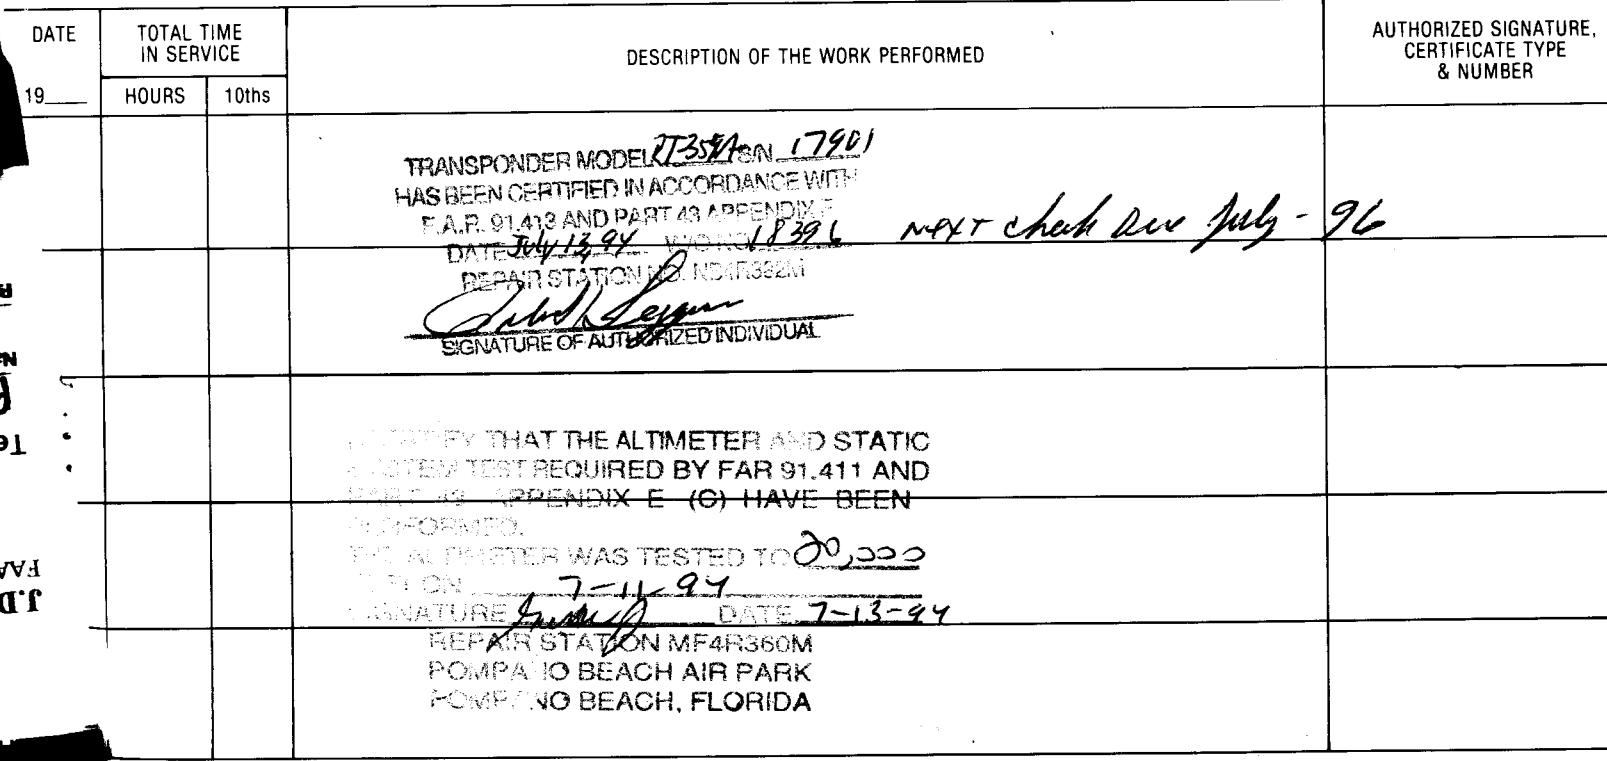 DATE
TOTAL TIME
IN SERVICE
DESCRIPTION OF THE WORK PERFORMED
AUTHORIZED SIGNATURE,
CERTIFICATE TYPE
& NUMBER
19
HOURS
10ths
TRANSPONDER MODEL RT359A S/N 17901
HAS BEEN CERTIFIED IN ACCORDANCE WITH
F.A.R. 91.413 AND PART 43 APPENDIX F
DATE July 13, 94 W/O NO. 18396 NEXT check Due July - 96
REPAIR STATION NO. ND4R392M
SIGNATURE OF AUTHORIZED INDIVIDUAL
CERTIFY THAT THE ALTIMETER AND STATIC
SYSTEM TEST REQUIRED BY FAR 91.411 AND
PART 43 APPENDIX E (C) HAVE BEEN
PERFORMED.
THE ALTIMETER WAS TESTED TO 20,000
ON 7-11-94
SIGNATURE DATE 7-13-94
REPAIR STATION MF4R360M
POMPANO BEACH AIR PARK
POMPANO BEACH, FLORIDA
FAA
J.D.